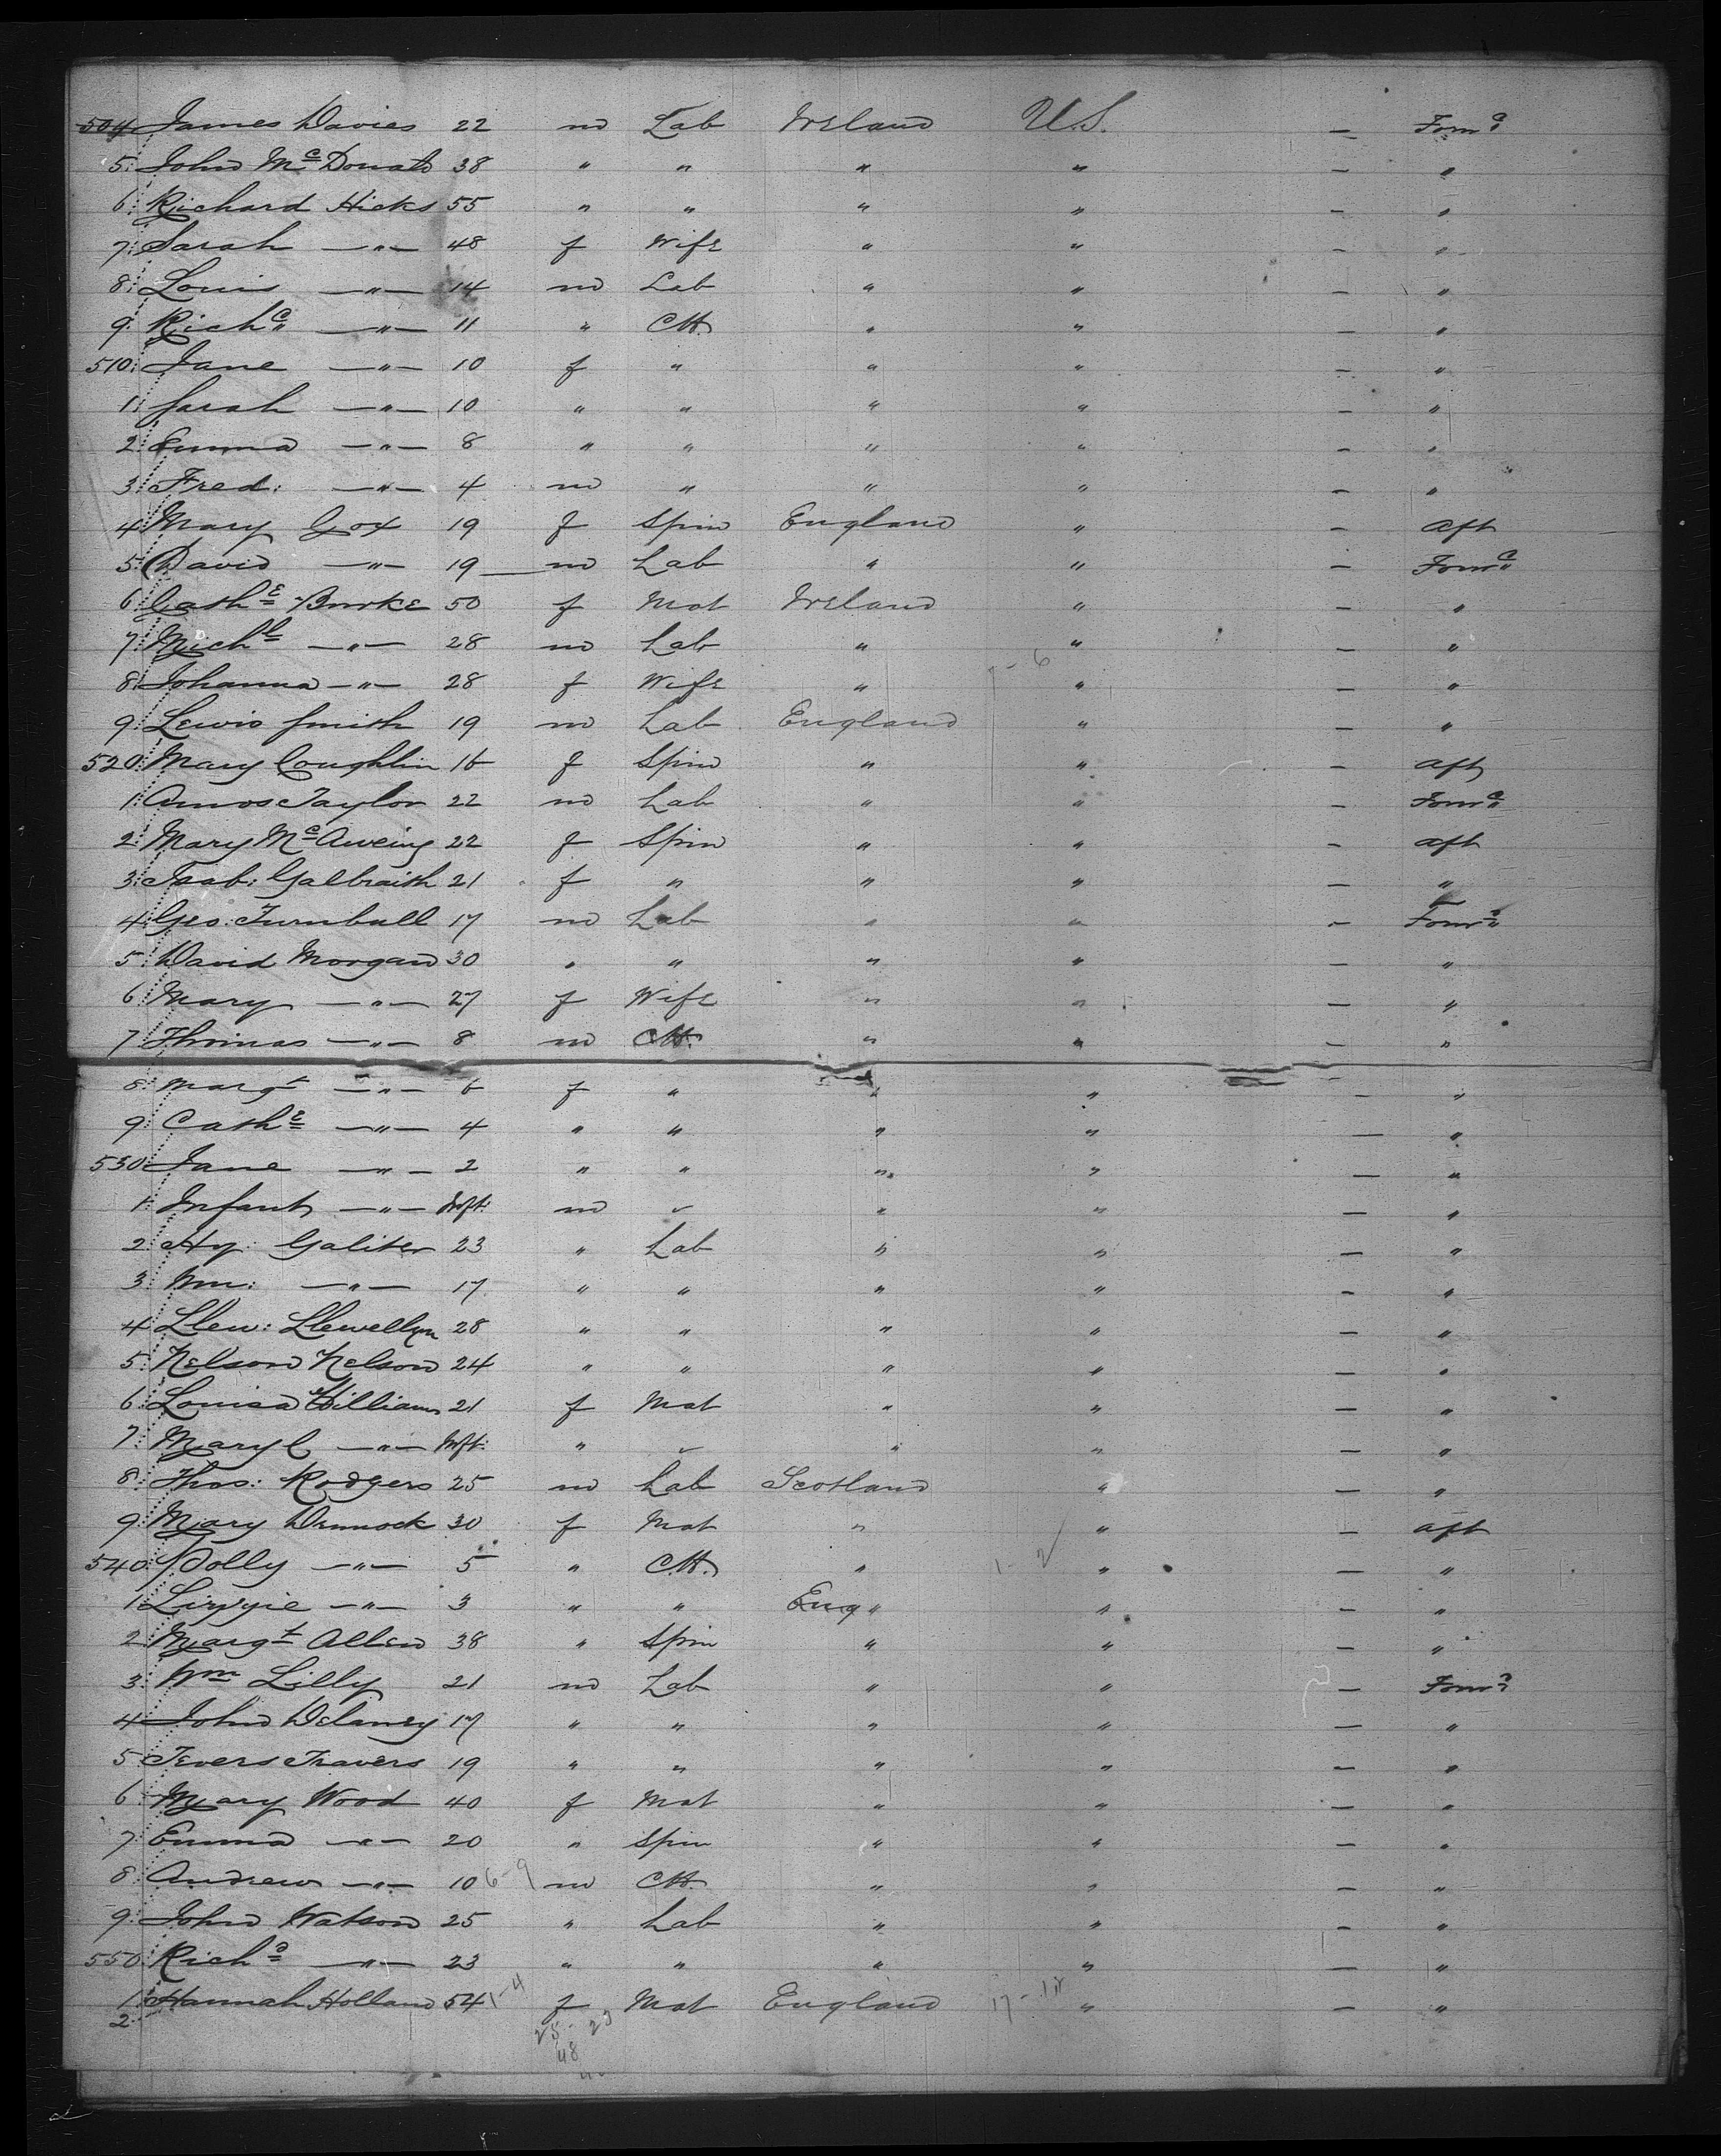 504 James Davies 22 m Lab Ireland U.S. — Forw<sup>d</sup>
5: John M<sup>c</sup>Donald 38 " " " " — "
6: Richard Hicks 55 " " " " — "
7: Sarah —"— 48 f Wife " " — "
8: Louis —"— 14 m Lab " " — "
9: Rich<sup>d</sup> —"— 11 " Ch. " " — "
510: Jane —"— 10 f " " " — "
1: Sarah —"— 10 " " " " — "
2: Emma —"— 8 " " " " — "
3: Fred: —"— 4 m " " " — "
4: Mary Cox 19 f Spin England " — aft
5: David —"— 19 m Lab " " — Forw<sup>d</sup>
6: Cath<sup>e</sup> Burke 50 f Mat Ireland " — "
7: Mich<sup>l</sup> —"— 28 m Lab " " — "
8: Johanna —"— 28 f Wife " " — "
9: Lewis Smith 19 m Lab England " — "
520: Mary Coughlin 16 f Spin " " — aft
1: Amos Taylor 22 m Lab " " — Forw<sup>d</sup>
2: Mary M<sup>c</sup> 22 f Spin " " — aft
3: Isab: Galbraith 21 f " " " — "
4: Geo: Turnbull 17 m Lab " " — Forw<sup>d</sup>
5: David Morgan 30 " " " " — "
6: Mary —"— 27 f Wife " " — "
7: Thomas —"— 8 m Ch. " " — "
8: Marg<sup>t</sup> —"— 6 f " " " — "
9: Cath<sup>e</sup> —"— 4 " " " " — "
530: Jane —"— 2 " " " " — "
1: Infant —"— Inft: m " " " — "
2: Hy: Galiter 23 " Lab " " — "
3: Wm: —"— 17 " " " " — "
4: Llew: Llewellyn 28 " " " " — "
5: Nelson Nelson 24 " " " " — "
6: Louisa Williams 21 f Mat " " — "
7: Mary C —"— Inft: " " " " — "
8: Thos: Rodgers 25 m Lab Scotland " — "
9: Mary Dimmock 30 f Mat " " — aft
540: Polly —"— 5 " Ch. " " — "
1: Lizzie —"— 3 " " Eng " " — "
2: Marg<sup>t</sup> Allen 38 " Spin " " — "
3: W<sup>m</sup> Lilly 21 m Lab " " — Forw<sup>d</sup>
4: John Delaney 17 " " " " — "
5: Travers 19 " " " " — "
6: Mary Wood 40 f Mat " " — "
7: Emma —"— 20 " Spin " " — "
8: Andrew —"— 10 6-9 m Ch. " " — "
9: John Watson 25 " Lab " " — "
550: Rich<sup>d</sup> —"— 23 " " " " — "
1: Hannah Holland 54 1-4 f Mat England " — "
2: 25 - 23
48